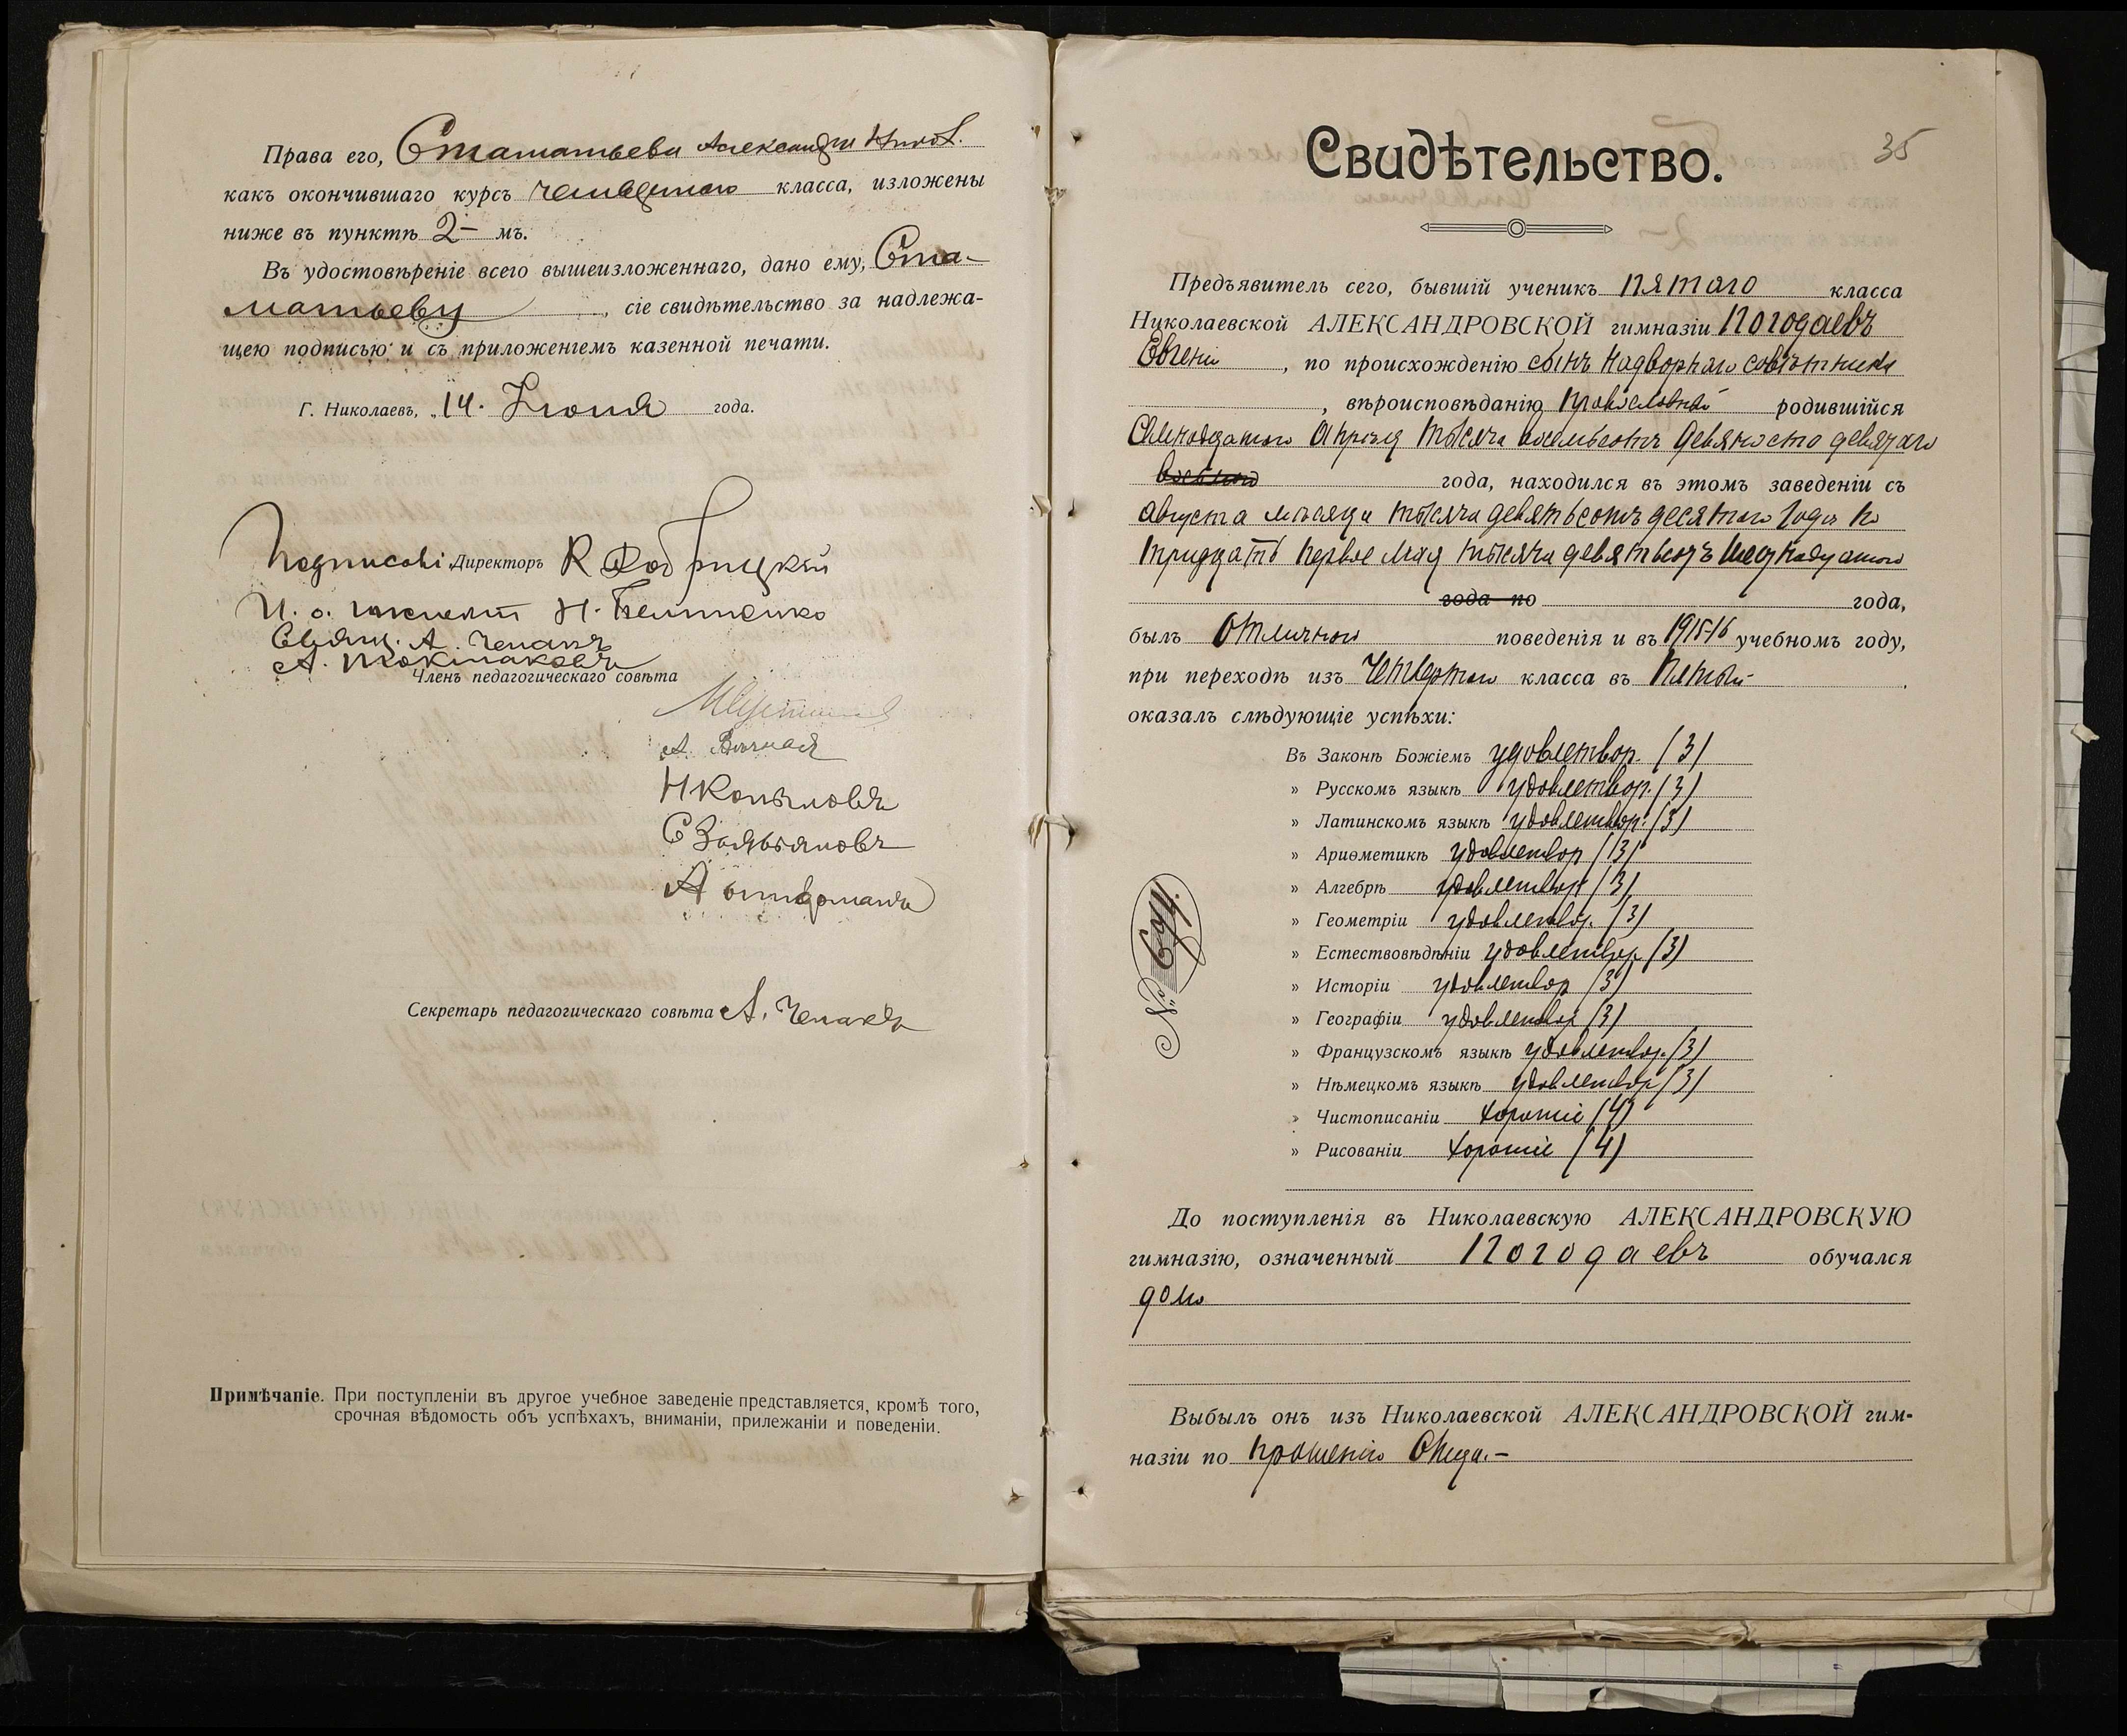 Права его, Стаматьева Александра Никол.
какъ окончившаго курсъ четвертаго класса, изложены
ниже въ пунктѣ 2- мъ.
Въ удостовѣреніе всего вышеизложеннаго, дано ему, Ста-
матьеву, сіе свидѣтельство за надлежа-
щею подписью и съ приложеніемъ казенной печати.
Г. Николаевъ, „14. Іюня года.
Подписалі Директоръ К Добрицкій
И. о. Н.
Священ. А. Чепакъ
А.
Членъ педагогическаго совѣта
А.
Н Копыловъ
С
А
Секретарь педагогическаго совѣта А. Чепакъ
Примѣчаніе. При поступленіи въ другое учебное заведеніе представляется, кромѣ того,
срочная вѣдомость объ успѣхахъ, вниманіи, прилежаніи и поведеніи.
35
Свидѣтельство.
Предъявитель сего, бывшій ученикъ пятаго класса
Николаевской АЛЕКСАНДРОВСКОЙ гимназіи Погодаевъ
Евгеній, по происхожденію сынъ надворнаго совѣтника
, вѣроисповѣданію православнаго родившійся
Семнадцатаго Апрѣля тысяча восемьсотъ девяносто девятаго
года, находился въ этомъ заведеніи съ
августа мѣсяца тысяча девятьсотъ десятаго года по
тридцать первое мая тысяча девятьсотъ шестнадцатаго
года по года,
былъ отличнаго поведенія и въ 1915-16 учебномъ году,
при переходѣ изъ четвертаго класса въ пятый
оказалъ слѣдующіе успѣхи:
Въ Законѣ Божіемъ удовлетвор. (3)
» Русскомъ языкѣ удовлетвор. (3)
» Латинскомъ языкѣ удовлетвор. (3)
» Ариѳметикѣ удовлетвор (3)
» Алгебрѣ удовлетвор (3)
» Геометріи удовлетвор. (3)
» Естествовѣдѣніи удовлетвор (3)
» Исторіи удовлетвор (3)
» Географіи удовлетвор (3)
» Французскомъ языкѣ удовлетвор. (3)
» Нѣмецкомъ языкѣ удовлетвор (3)
» Чистописаніи хорошіе (4)
» Рисованіи хорошіе (4)
№ 694.
До поступленія въ Николаевскую АЛЕКСАНДРОВСКУЮ
гимназію, означенный Погодаевъ обучался
дома
Выбылъ онъ изъ Николаевской АЛЕКСАНДРОВСКОЙ гим-
назіи по прошенію Отца.-